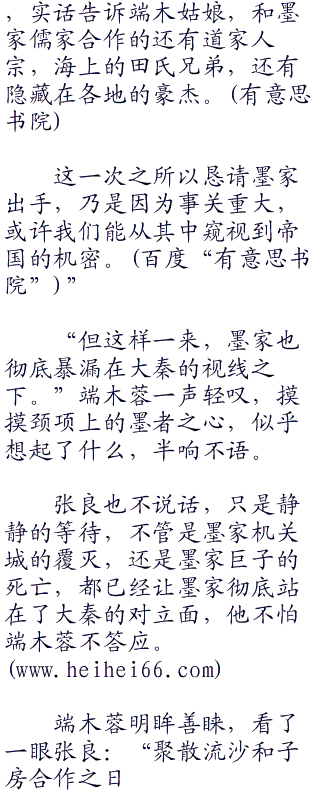 ，实话告诉端木姑娘，和墨
家儒家合作的还有道家人
宗，海上的田氏兄弟，还有
隐藏在各地的豪杰。(有意思
书院)
这一次之所以恳请墨家
出手，乃是因为事关重大，
或许我们能从其中窥视到帝
国的机密。(百度“有意思书
院”)”
“但这样一来，墨家也
彻底暴漏在大秦的视线之
下。”端木蓉一声轻叹，摸
摸颈项上的墨者之心，似乎
想起了什么，半响不语。
张良也不说话，只是静
静的等待，不管是墨家机关
城的覆灭，还是墨家巨子的
死亡，都已经让墨家彻底站
在了大秦的对立面，他不怕
端木蓉不答应。
(www.heihei66.com)
端木蓉明眸善睐，看了
一眼张良：“聚散流沙和子
房合作之日